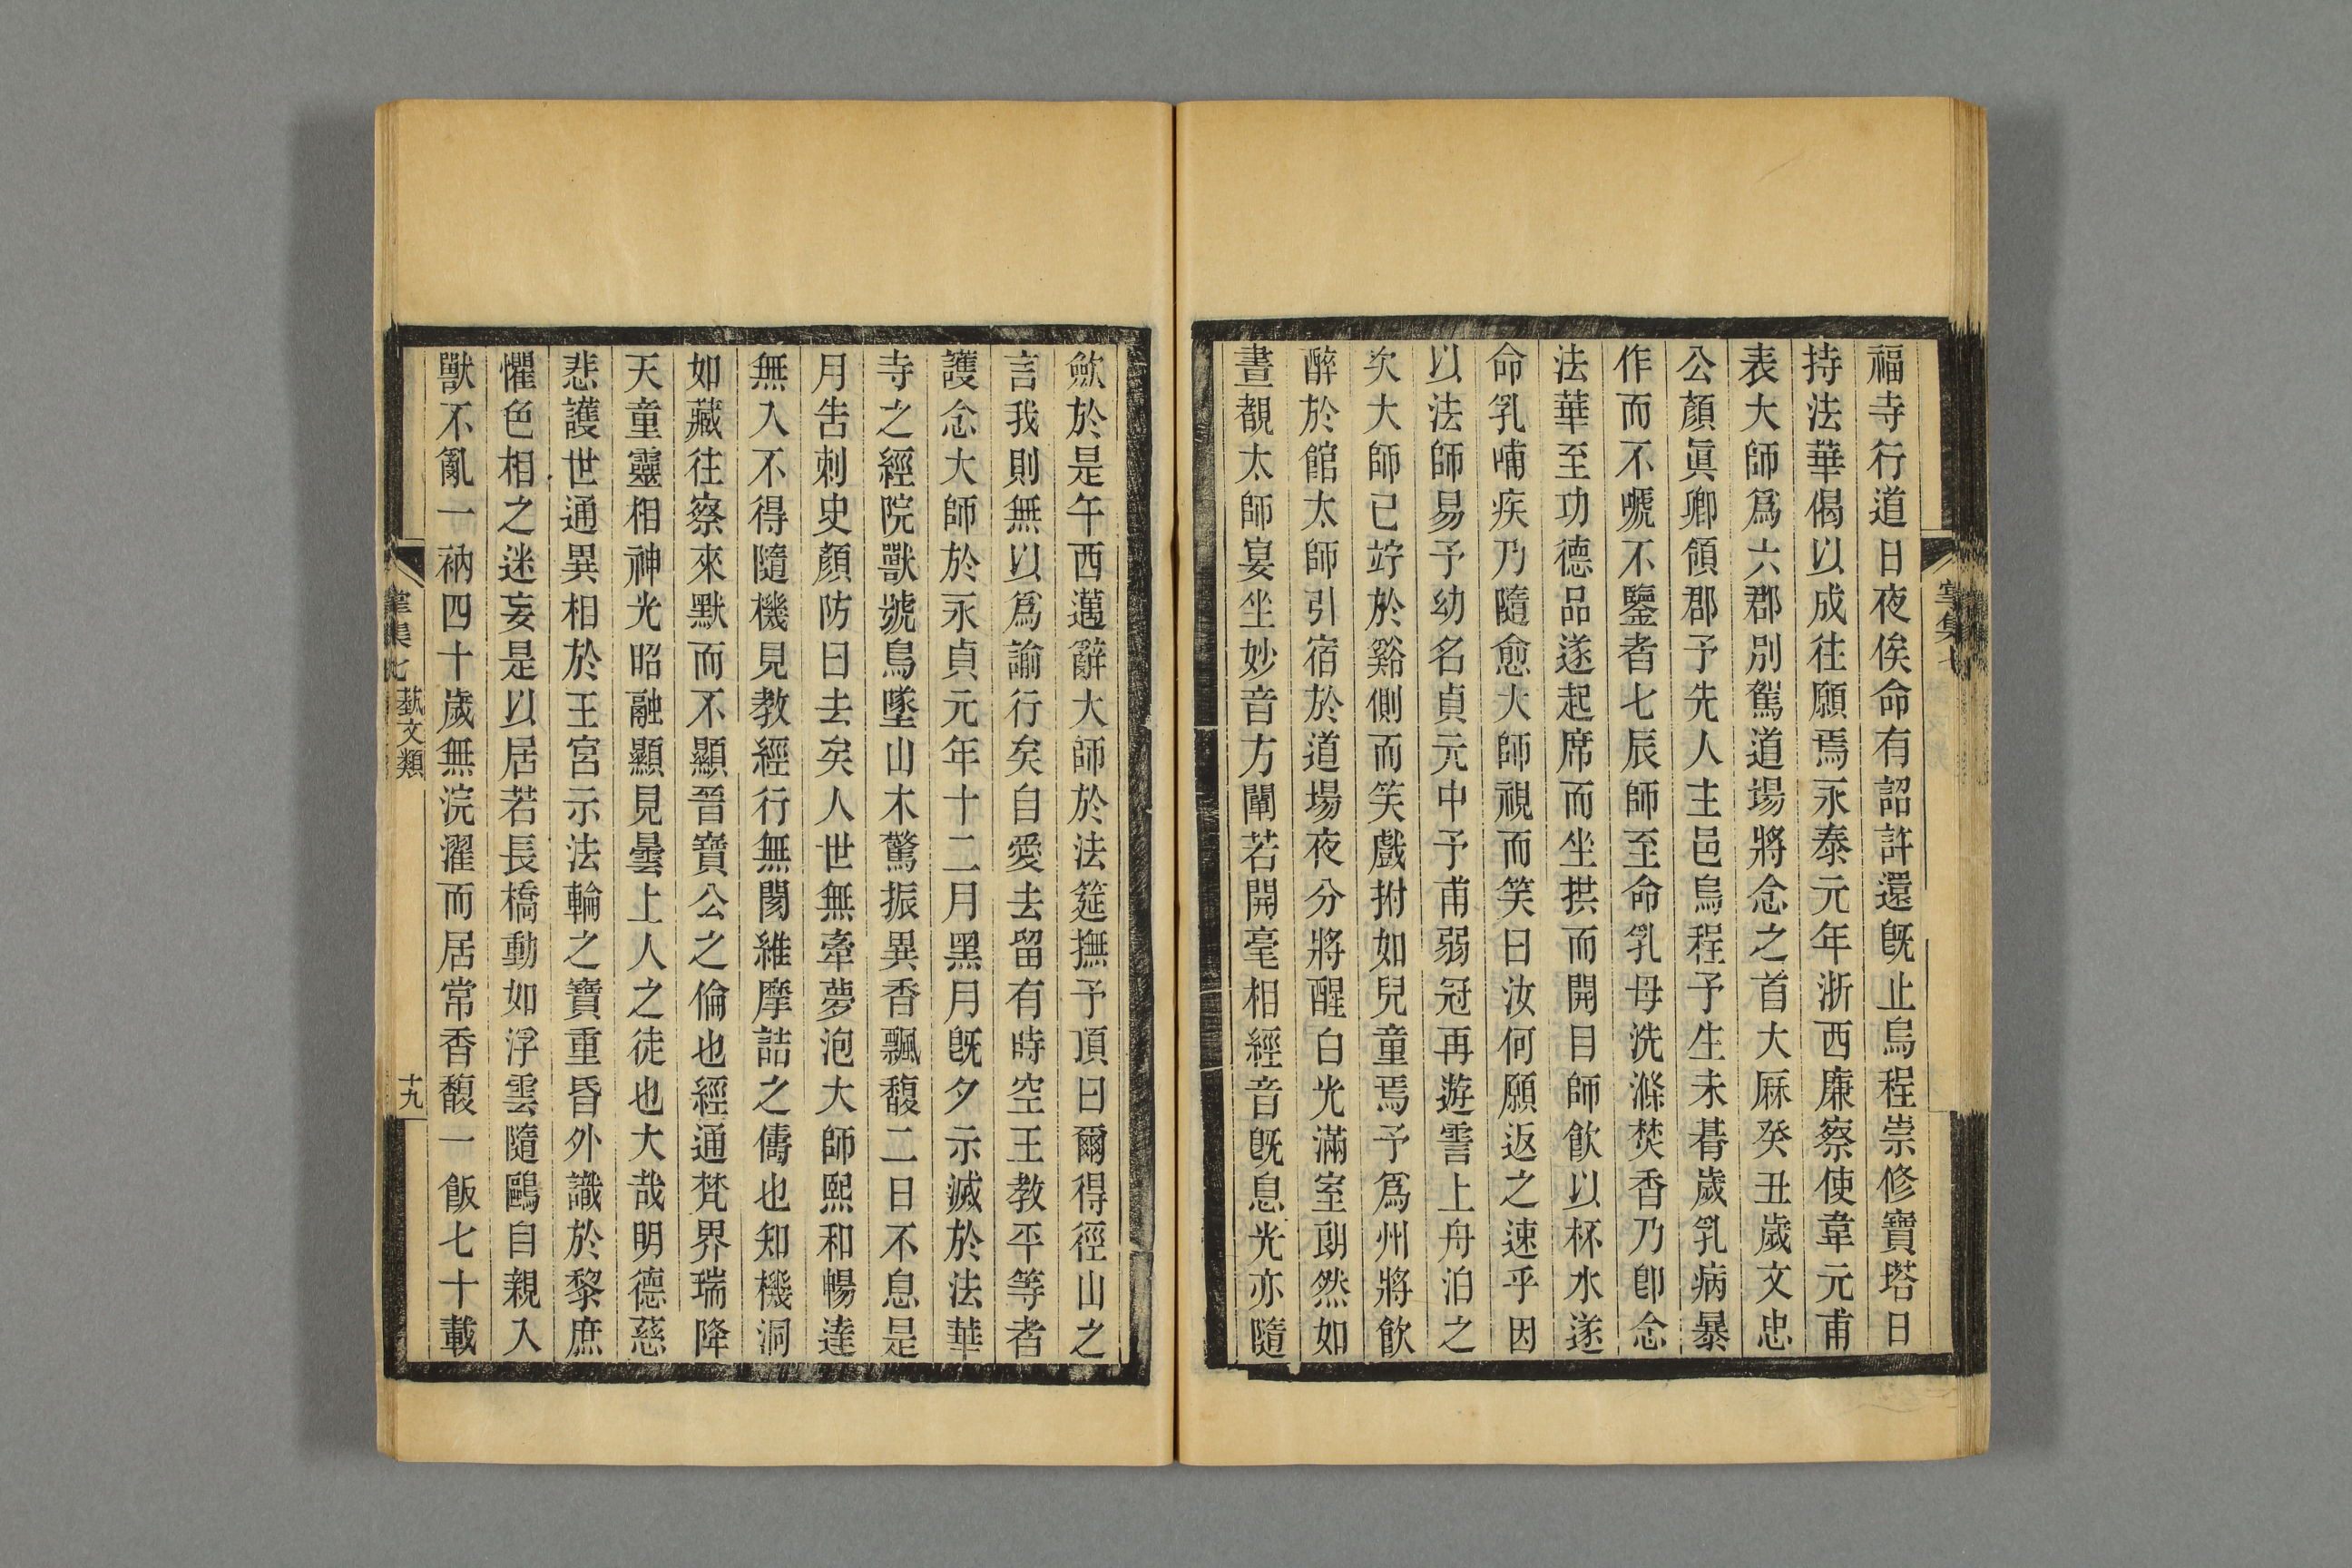 福寺行道日夜俟命有詔許還旣止烏程崇修寶塔日
持法華偈以成往願焉永泰元年浙西廉察使韋元甫
表大師爲六郡別駕道場將念之首大厤癸丑歲文忠
公顏眞卿領郡予先人主邑烏程予生未朞歲乳病暴
作而不嗁不鑒者七辰師至命乳母洗滌焚香乃卽念
法華至功德品遂起席而坐拱而開目師飮以杯水遂
命乳哺疾乃隨愈大師視而笑曰汝何願返之速乎因
以法師易予幼名貞元中予甫弱冠再遊霅上舟泊之
次大師已竚於谿側而笑戲拊如兒童焉予爲州將飮
醉於館太師引宿於道場夜分將醒白光滿室朗然如
晝覩太師宴坐妙音方闡若開毫相經音旣息光亦隨
歛於是午西邁辭大師於法筵撫予頂曰爾得徑山之
言我則無以爲諭行矣自愛去留有時空王教平等者
護念大師於永貞元年十二月黑月旣夕示滅於法華
寺之經院獸號鳥墜山木驚振異香飄馥二日不息是
月吿刺史顏防曰去矣人世無牽夢泡大師熙和暢達
無入不得隨機見教經行無閡維摩詰之儔也知機洞
如藏往察來默而不顯晉寶公之倫也經通梵界瑞降
天童靈相神光昭融顯見曇上人之徒也大哉明德慈
悲護世通異相於王宮示法輪之寶重昏外識於黎庶
懼色相之迷妄是以居若長橋動如浮雲隨鷗自親入
獸不亂一衲四十歲無浣濯而居常香馥一飯七十載
掌集七
藝文類
十九